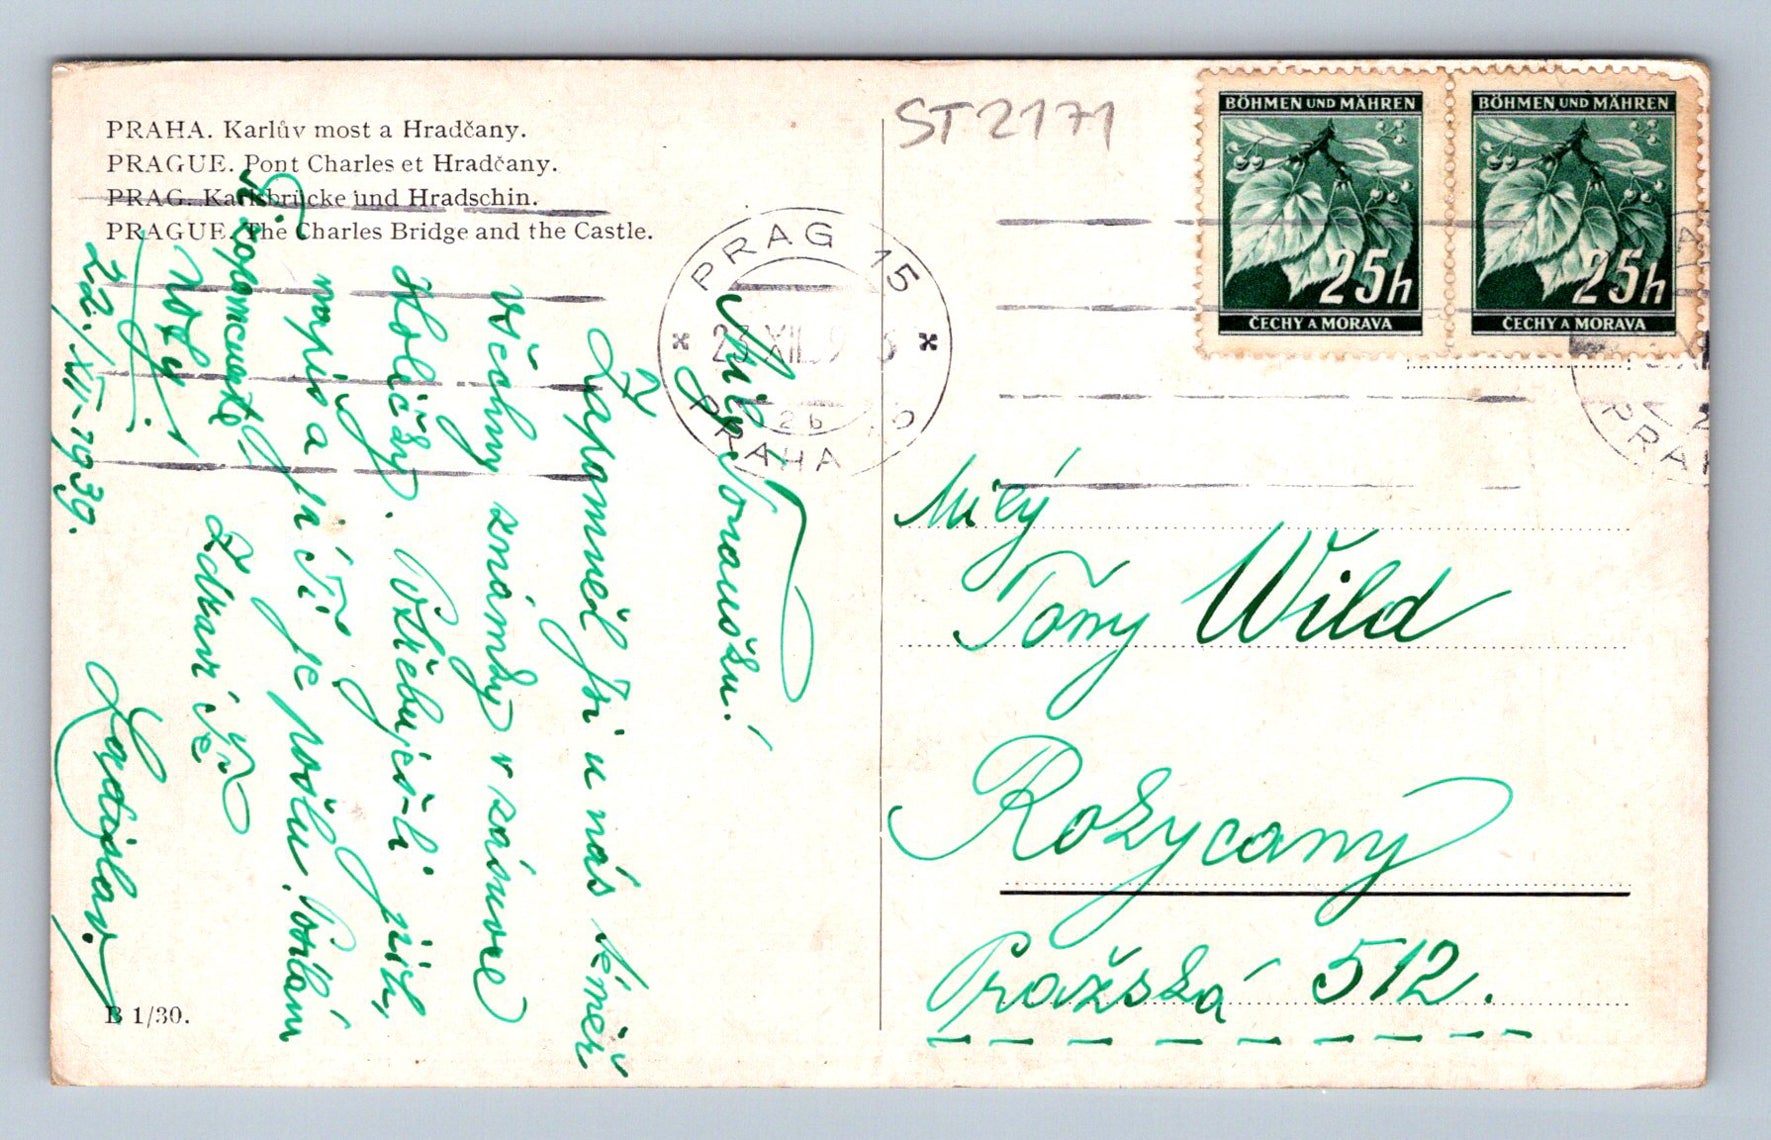 PRAHA. Karlův most a Hradčany.
PRAGUE. Pont Charles et Hradčany.
PRAG. Karlsbrücke und Hradschin.
PRAGUE. The Charles Bridge and the Castle.
ST2171
BÖHMEN UND MÄHREN
25h
ČECHY A MORAVA
BÖHMEN UND MÄHREN
25h
ČECHY A MORAVA
PRAG 15
23 XII
2b
PRAHA
PRAHA
Milý
Tony Wild
Rožycany
Pražská 512.
Milý
Zapomněl jsi u nás téměř
všechny známky v zásuvce
Potřebuješ-li jich,
napiš a já Ti je pošlu. Posílám
noty!
Zdraví Tě
Ladislav.
22./XII-1939.
B 1/30.